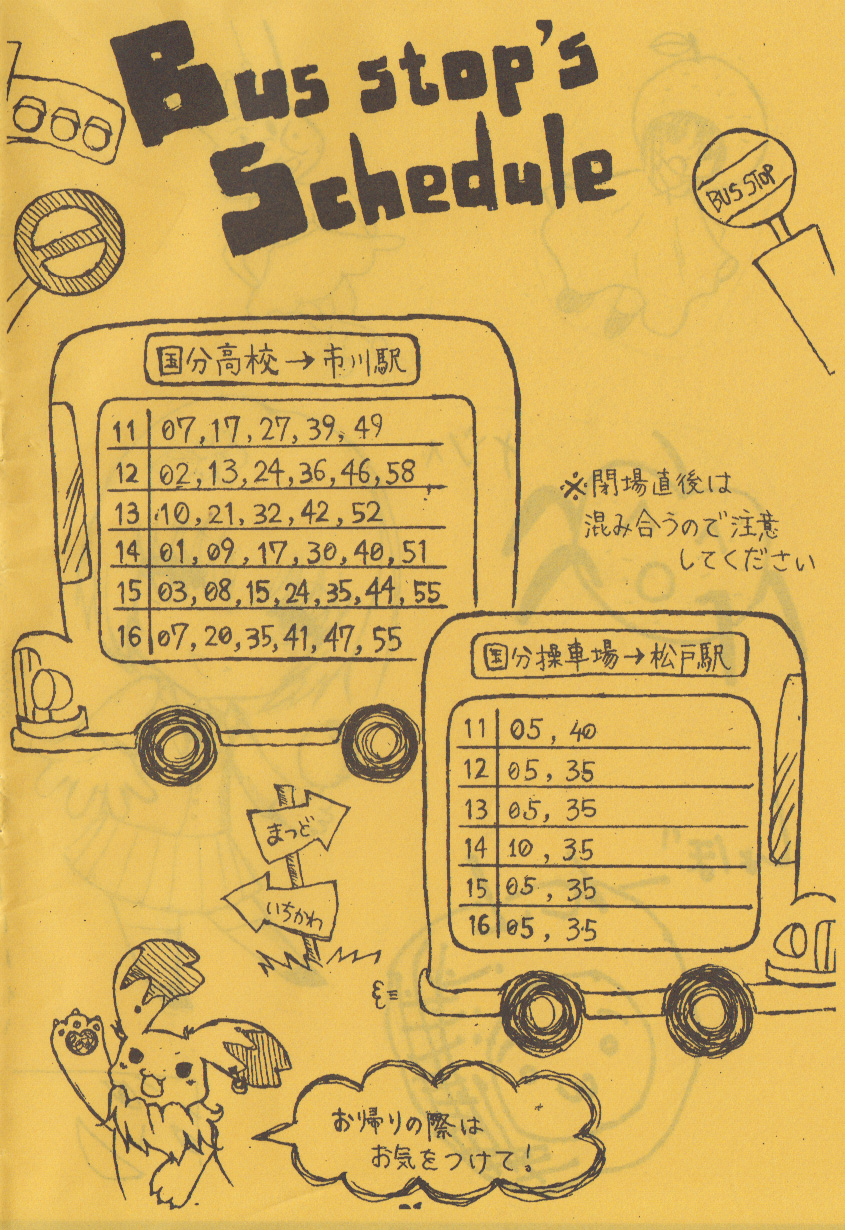 Bus stop's
Schedule
BUS STOP
国分高校→市川駅
11 07,17,27,39,49
12 02,13,24,36,46,58
13 10,21,32,42,52
14 01,09,17,30,40,51
15 03,08,15,24,35,44,55
16 07,20,35,41,47,55
※閉場直後は
混み合うので注意
してください
国分操車場→松戸駅
11 05,40
12 05,35
13 05,35
14 10,35
15 05,35
16 05,35
まつど
いちかわ
お帰りの際は
お気をつけて!